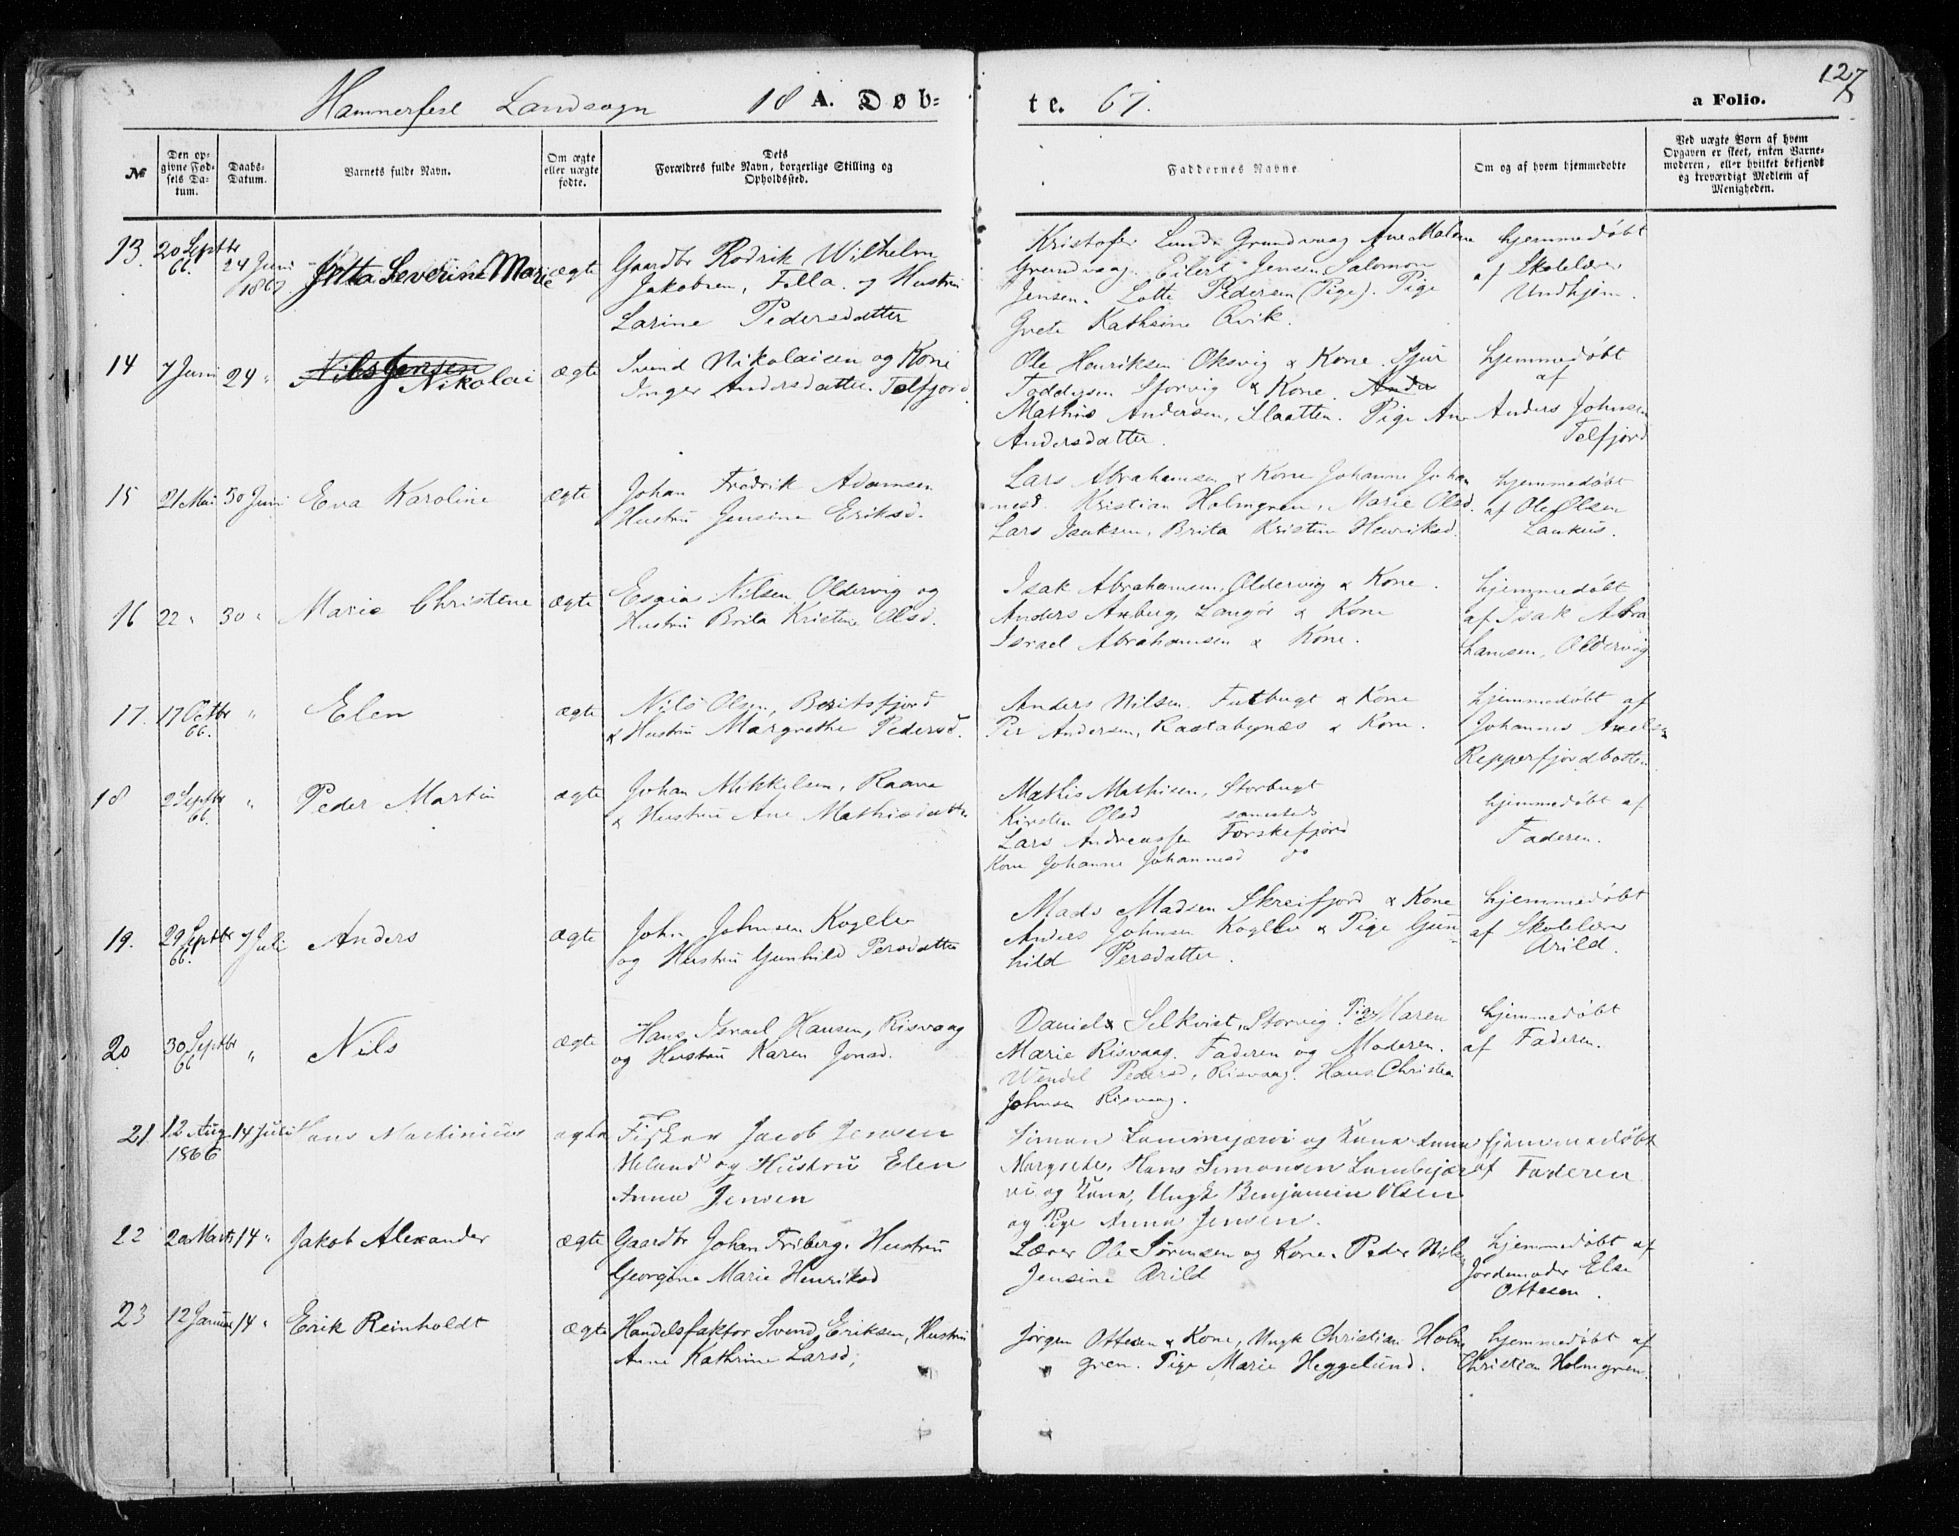 127
Hammerfest Landsogn 18 A. Døb-
te. 67.
a Folio.
№
Den op-
givne Fød-
sels Da-
tum.
Daabs-
Datum.
Barnets fulde Navn.
Om ægte
eller uægte
fødte.
Dets
Forældres fulde Navn, borgerlige Stilling og
Opholdssted.
Faddernes Navne
Om og af hvem hjemmedøbte
Ved uægte Born af hvem
Opgaven er skeet, enten Barne-
moderen, eller hvilket bekjendt
og troværdigt Medlem af
Menigheden.
13. 20 Septbr
66. 24 Juni
1867
Severine Marie ægte
Gaardbr Rodrik Wilhelm
Jakobsen, Folla. og Hustru
Larine Pedersdatter
Kristofer Lund Grundvaag Ane Malene
Grundvaag. Eilert Jensen Salomon
Jensen. Lotte Pedersen (Pige). Pige
Grete Kathrine Qvik.
hjemmedøbt
af Skolelærer
Undhjem.
14 7 Juni 24 " Nils Jensen
Nikolai ægte
Svend Nikolaisen og Kone
Inger Andersdatter. Tolfjord.
Ole Henriksen Oksvig & Kone. Sjur
Faddysen Sforvig & Kone. Ander
Mathis Andersen, Slaatten. Pige Ane
Andersdatter.
hjemmedøbt
af
Anders Johnsen
Tolfjord
15 21 Mai 30 Juni Eva Karoline ægte
Johan Fredrik Adamsen
Hustru Jensine Eriksd.
Lars Abrahamsen & Kone Johanne Johan
nesd. Kristian Holmgren, Marie Olsd.
Lars Isaksen, Brita Kristine Henriksd.
hjemmedøbt
af Ole Olsen
Laukus.
16 22 " 30 " Marie Christene ægte
Esaias Nilsen Oldervig og
Hustru Brita Kristine Olsd.
Isak Abrahamsen, Oldervig & Kone.
Anders Amberg, Langør & Kone
Israel Abrahamsen & Kone.
hjemmedøbt
af Isak Abra
hamsen, Oldervig
17. 17 Octbr
66. " Elen ægte
Nils Olsen, Beritsfjord
& Hustru Margrethe Pedersd.
Anders Nilsen. Fatbugt & Kone
Per Andersen, Rastabynæs & Kone.
hjemmedøbt af
Johannes Axelsen
Repperfjordbotten
18 2 Septbr
66. " Peder Martin ægte
Johan Mikkelsen, Raana
& Hustru Ane Mathisdatter
Mathis Mathisen, Storbugt
Kirsten Olsd samested
Lars Andreassen Torskefjord
Kone Johanne Johannesd do
hjemmedøbt af
Faderen.
19. 29 Septbr
66. 7 Juli Anders ægte
John Johnsen Koglev
og Hustru Gunhild Persdatter
Mads Madsen Skreifjord & Kone
Anders Johnsen Koglev & Pige Gun-
hild Persdatter.
hjemmedøbt
af Skolelærer
Arild.
20 30 Septbr
66 " Nils ægte
Hans Israel Hansen, Risvaag
og Hustru Karen Jonsd.
Daniel Selkvist, Storvig. Pige Maren
Marie Risvaag. Faderen og Moderen.
Wendel Pedersd, Risvaag. Hans Christian
Johnsen Risvaag.
hjemmedøbt
af Faderen.
21 12 Aug
1866 14 Juli Hans Martinius ægte
Fisker Jacob Jensen
og Hustru Elen
Anna Jensen
Simon Lammisjærvi og Kone Anna
Margrete, Hans Simonsen Lambisjær
vi og Kone, Ungk Benjamin Olsen
og Pige Anna Jensen.
hjemmedøbt
af Faderen
22 20 Marts 14 " Jakob Alexander ægte
Gaardbr Johan Friberg. Hustru
Georgine Marie Henriksd
Lærer Ole Sørensen og Kone. Peder Nilsen
Jensine Arild
hjemmedøbt af
Jordemoder Else
Ottesen.
23 12 Januar 14 " Erik Reinholdt ægte
Handelsfaktor Svend Eriksen, Hustru
Anne Kathrine Larsd;
Jørgen Ottesen & Kone, Ungk Christian Holm
gren. Pige Marie Heggelund.
hjemmedøbt af
Christian Holmgren.